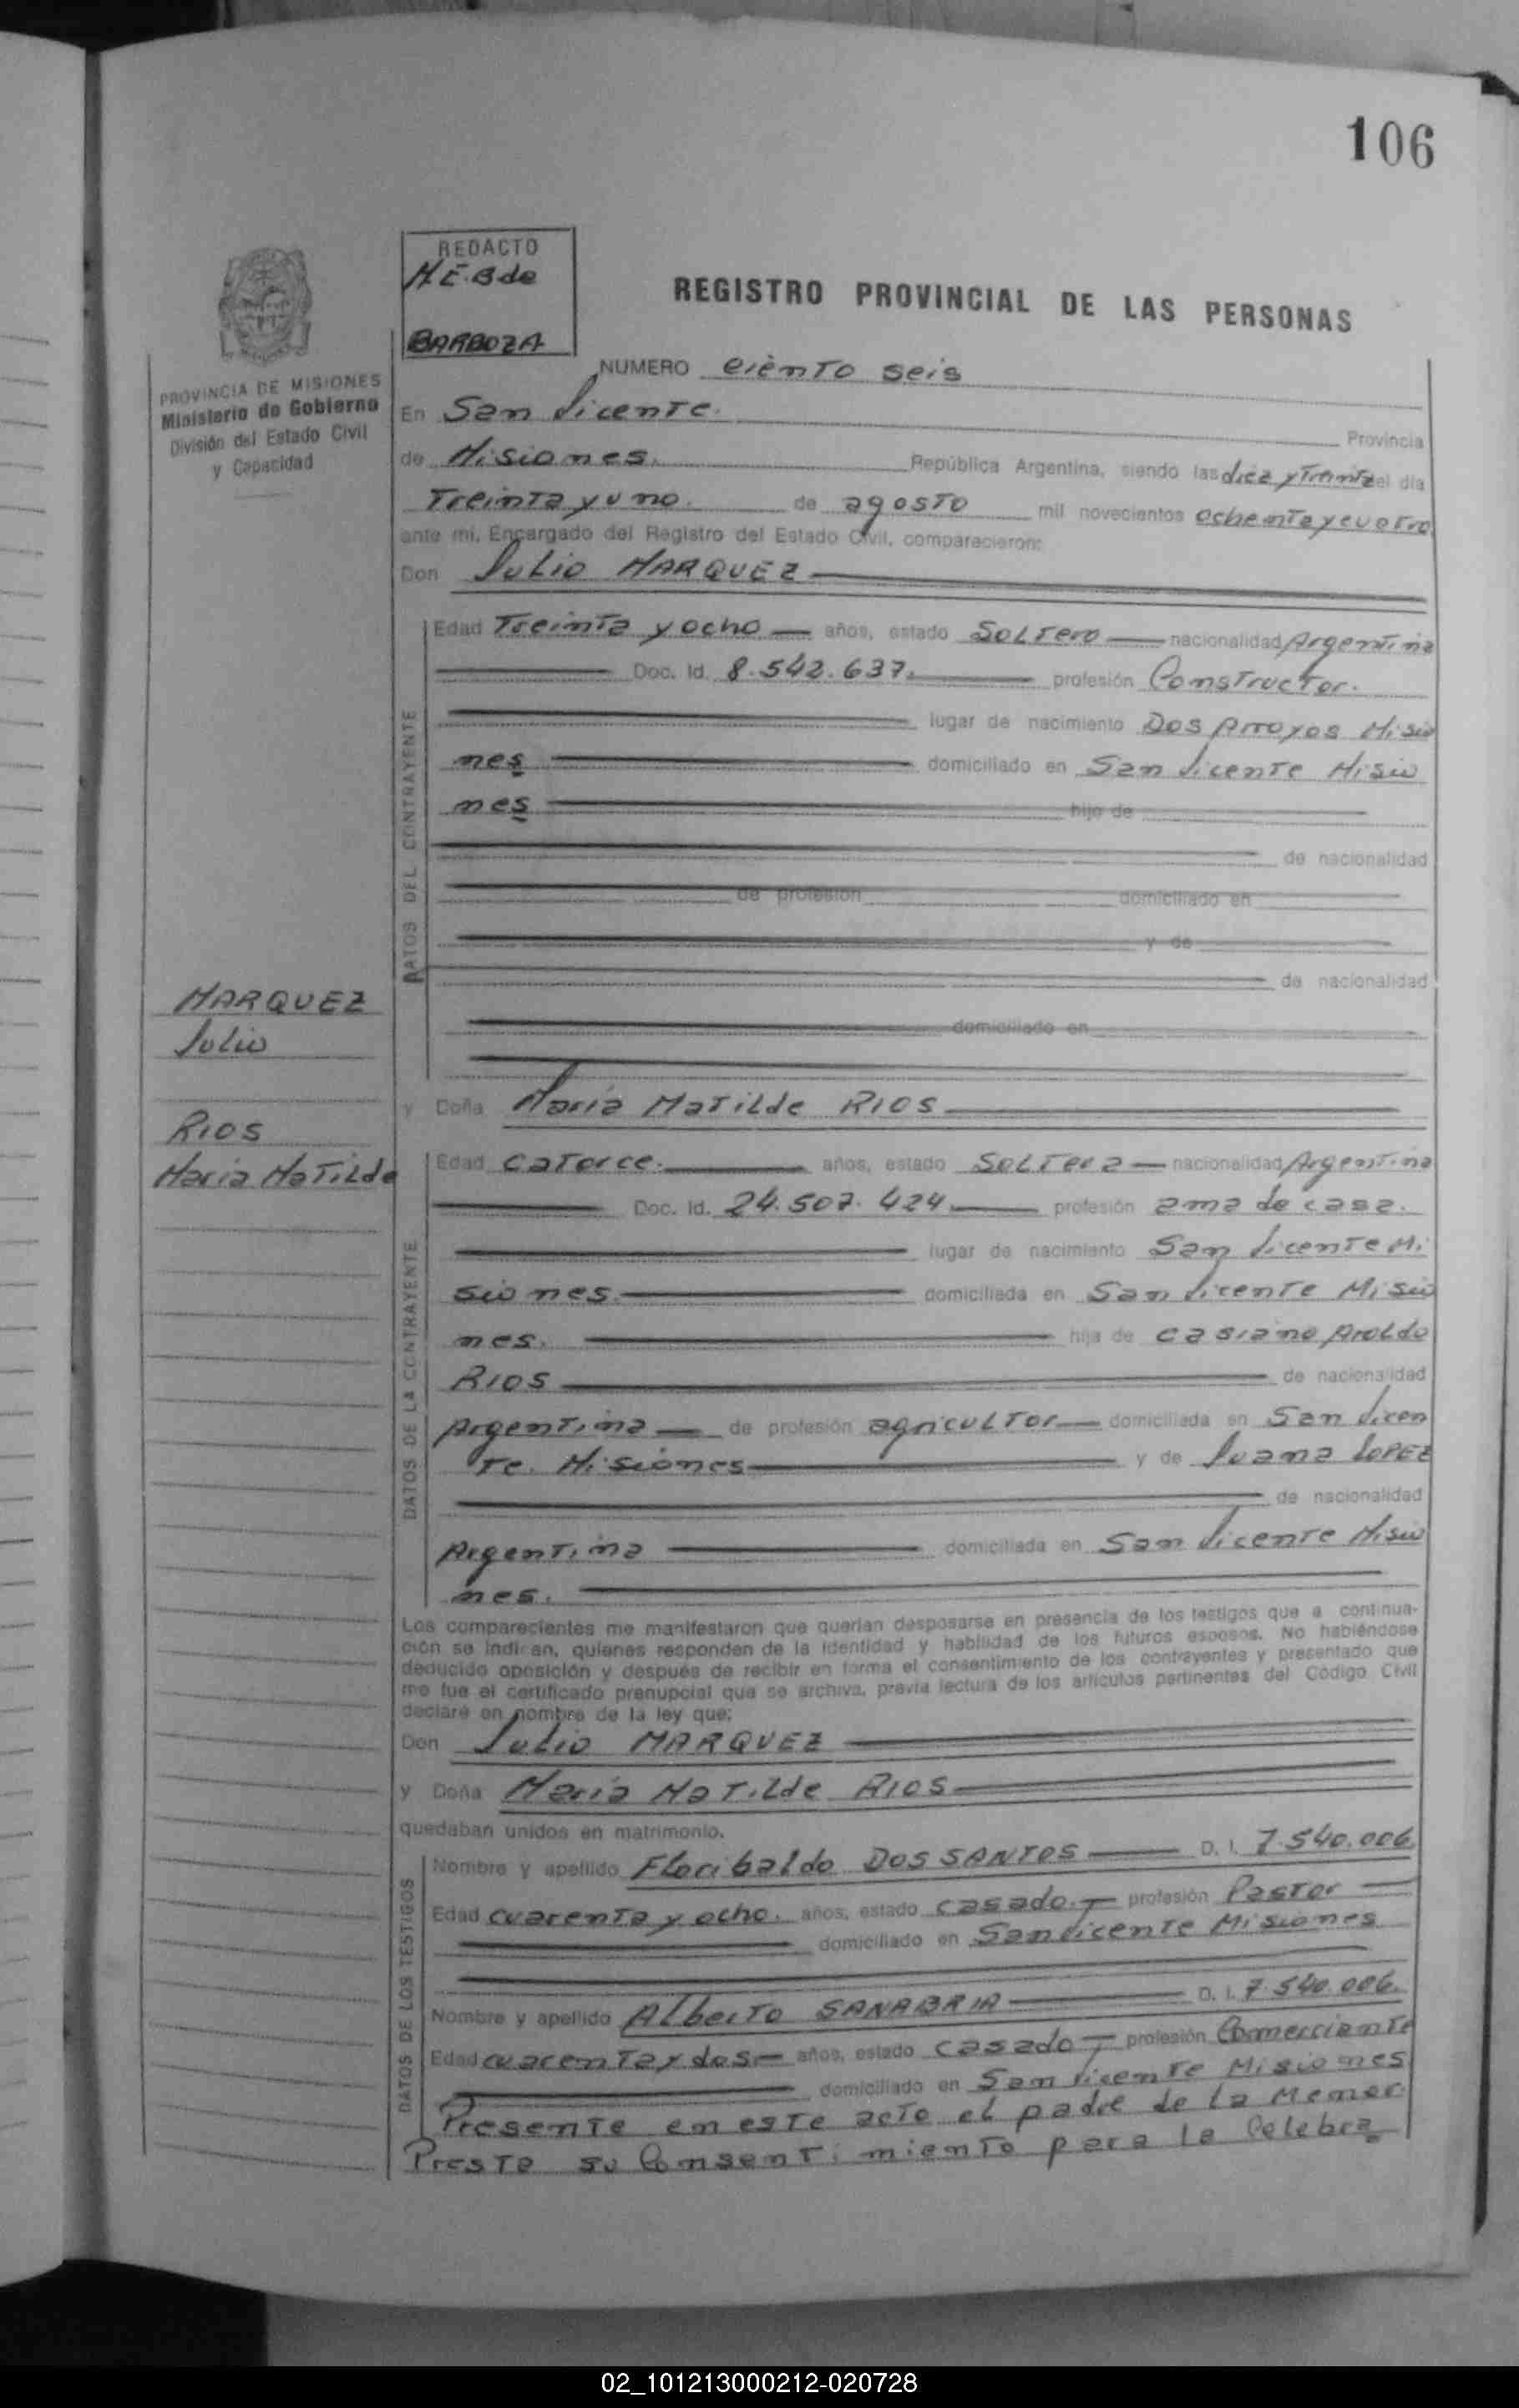 106
REDACTO
M.E.B de
BARBOZA
REGISTRO PROVINCIAL DE LAS PERSONAS
PROVINCIA DE MISIONES
Ministerio de Gobierno
División del Estado Civil
y Capacidad
NUMERO ciento seis
En San Vicente. Provincia
de Misiones. República Argentina, siendo las diez y Treinta del día
Treinta y uno. de agosto mil novecientos ochenta y cuatro
ante mi, Encargado del Registro del Estado Civil, comparecieron:
Don Julio MARQUEZ
DATOS DEL CONTRAYENTE
Edad Treinta y ocho años, estado Soltero nacionalidad Argentina
Doc. Id. 8.542.637. profesión Constructor.
lugar de nacimiento Dos Arroyos Misio
nes domiciliado en San Vicente Misio
nes hijo de
de nacionalidad
de profesión domiciliado en
y de
de nacionalidad
domiciliado en
MARQUEZ
Julio
RIOS
Maria Matilde
y Doña Maria Matilde RIOS
DATOS DE LA CONTRAYENTE
Edad Catorce. años, estado Soltera nacionalidad Argentina
Doc. Id. 24.507.424 profesión ama de casa.
lugar de nacimiento San Vicente Mi
siones. domiciliada en San Vicente Misio
nes. hija de Casiano Aroldo
RIOS de nacionalidad
Argentina de profesión agricultor domiciliada en San Vicen
te. Misiones y de Juana LOPEZ
de nacionalidad
Argentina domiciliada en San Vicente Misio
nes.
Los comparecientes me manifestaron que querían desposarse en presencia de los testigos que a continua-
ción se indican, quienes responden de la identidad y habilidad de los futuros esposos. No habiéndose
deducido oposición y después de recibir en forma el consentimiento de los contrayentes y presentado que
me fue el certificado prenupcial que se archiva, previa lectura de los artículos pertinentes del Código Civil
declaré en nombre de la ley que:
Don Julio MARQUEZ
y Doña Maria Matilde RIOS
quedaban unidos en matrimonio.
DATOS DE LOS TESTIGOS
Nombre y apellido Floribaldo DOS SANTOS D. I. 7.540.006
Edad cuarenta y ocho. años, estado casado. profesión Pastor
domiciliado en San Vicente Misiones
Nombre y apellido Alberto SANABRIA D. I. 7.540.006.
Edad cuarenta y dos años, estado casado profesión Comerciante
domiciliado en San Vicente Misiones
Presente en este acto el padre de la Menor
Presta su Consentimiento para la Celebra
02_101213000212-020728